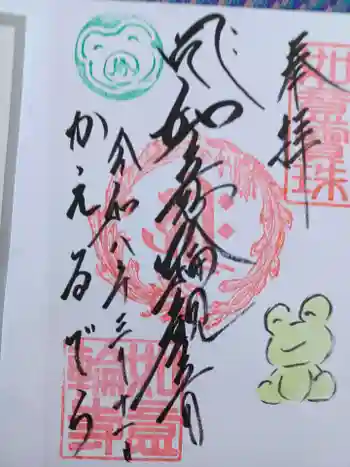 奉拝
如意寶珠
如意輪観音
令和八年三月
かえるでら
如意輪寺